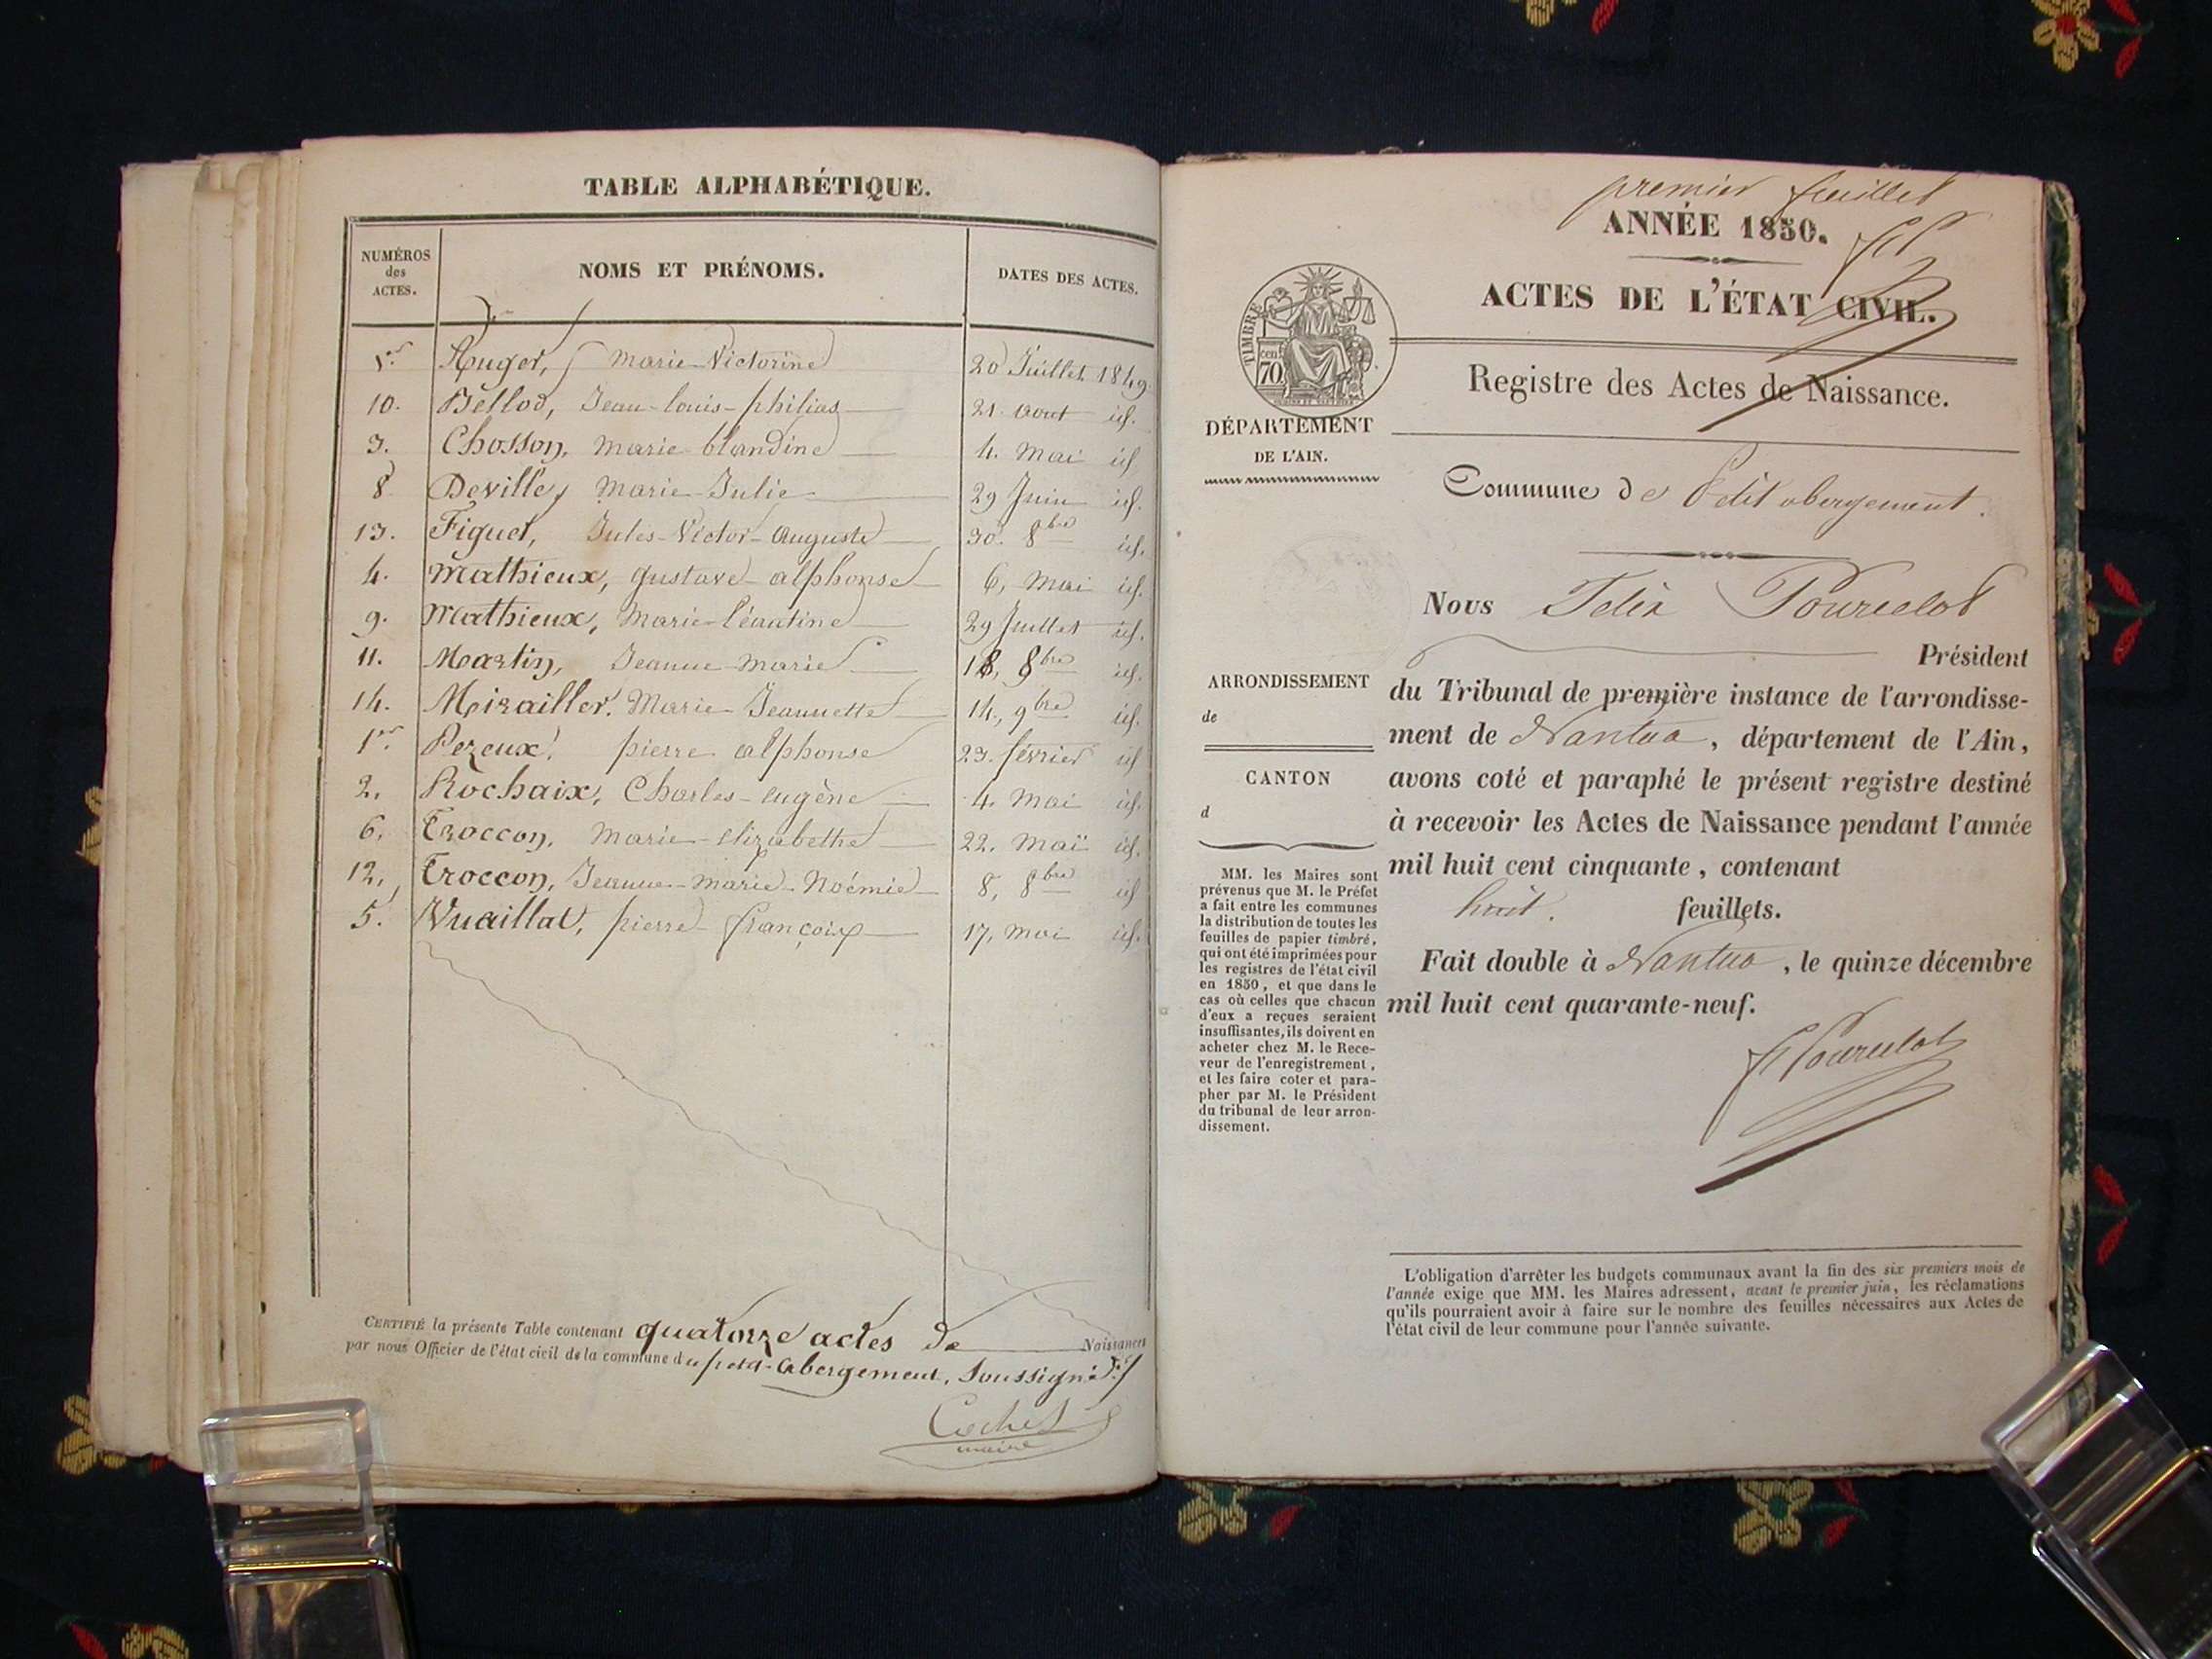 TABLE ALPHABÉTIQUE.
NUMÉROS des ACTES. NOMS ET PRÉNOMS. DATES DES ACTES.
Auger, Marie Victorine 20 Juillet 1849.
10. Bellod, Jean-louis-philias 21. aout id.
3. Chosson, marie blandine 4. mai id
8 Deville, Marie-Julie 29 Juin id.
13. Figuet, Jules-Victor-Auguste 30. 8bre id.
4. Mathieux, gustave alphonse 6, mai id.
9. Mathieux, Marie-Léontine 29 Juillet id.
11. Martin, Jeanne marie 8bre id.
14. Miraillet. Marie Jeannette 14, 9bre id.
1er Pezeux, pierre alphonse 23. février id
2. Rochaix, Charles-eugène 4. mai id.
6. Troccon, marie-elizabethe 22. maï id.
12. Troccon, Jeanne-marie-Noémie 8, 8bre id
5. Vuaillat, pierre françois 17, mai id.
CERTIFIÉ la présente Table contenant quatorze actes de Naissances
par nous Officier de l'état civil de la commune du petit-abergement, Soussigné
Cochet
maire
premier feuillet
ANNÉE 1850.
ACTES DE L'ÉTAT CIVIL.
TIMBRE
70 cen
Registre des Actes de Naissance.
DÉPARTEMENT
DE L'AIN.
Commune de Petit abergement.
Nous Felix Pourcelot
Président
ARRONDISSEMENT
de
CANTON
d
du Tribunal de première instance de l'arrondisse-
ment de Nantua, département de l'Ain,
avons coté et paraphé le présent registre destiné
à recevoir les Actes de Naissance pendant l'année
mil huit cent cinquante, contenant
huit. feuillets.
Fait double à Nantua, le quinze décembre
mil huit cent quarante-neuf.
F Pourcelot
MM. les Maires sont
prévenus que M. le Préfet
a fait entre les communes
la distribution de toutes les
feuilles de papier timbré,
qui ont été imprimées pour
les registres de l'état civil
en 1850, et que dans le
cas où celles que chacun
d'eux a reçues seraient
insuffisantes, ils doivent en
acheter chez M. le Rece-
veur de l'enregistrement,
et les faire coter et para-
pher par M. le Président
du tribunal de leur arron-
dissement.
L'obligation d'arrêter les budgets communaux avant la fin des six premiers mois de
l'année exige que MM. les Maires adressent, avant le premier juin, les réclamations
qu'ils pourraient avoir à faire sur le nombre des feuilles nécessaires aux Actes de
l'état civil de leur commune pour l'année suivante.